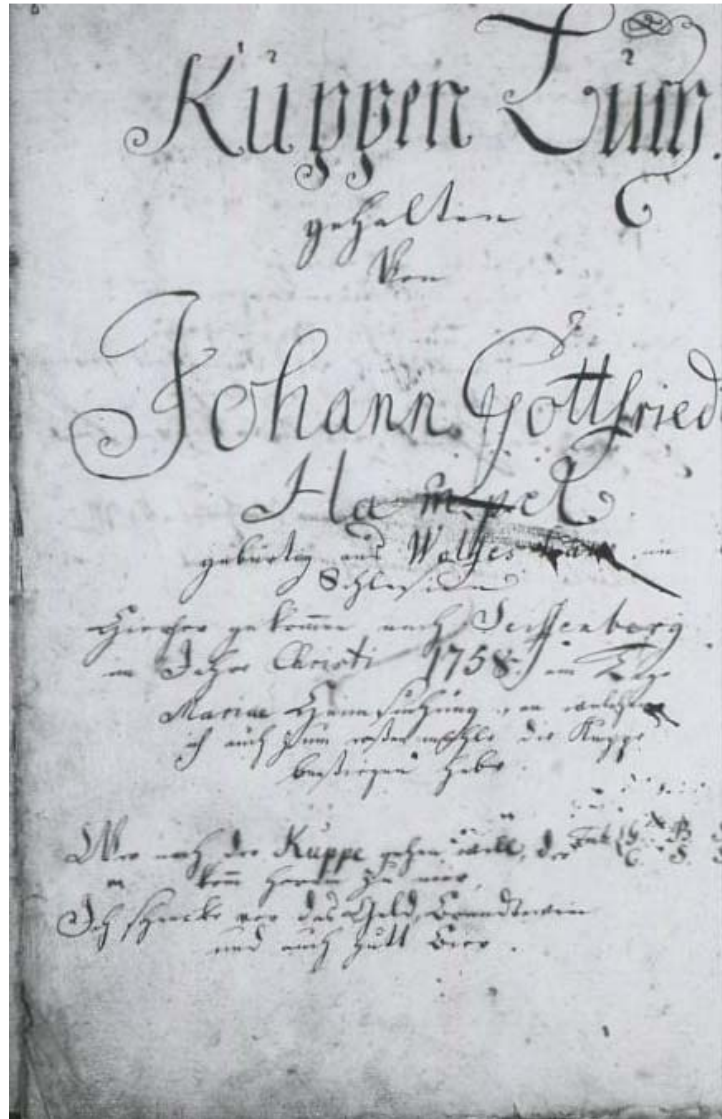 Küppen Buch.
gehalten
Von
Johann Gottfried
Hampel
gebürtig aus in
Schlesien
Hierher gekommen nach Seiffenberg
im Jahre Christi 1758. am Tage
Mariae Heimsuchung, an welchen
ich auch zum ersten mahle die Kuppe
bestiegen habe.
Wer nach der Kuppe gehen will, der
kom herein zu mir,
Ich schencke vor das Geld, Brandtwein
und auch gutt Bier.